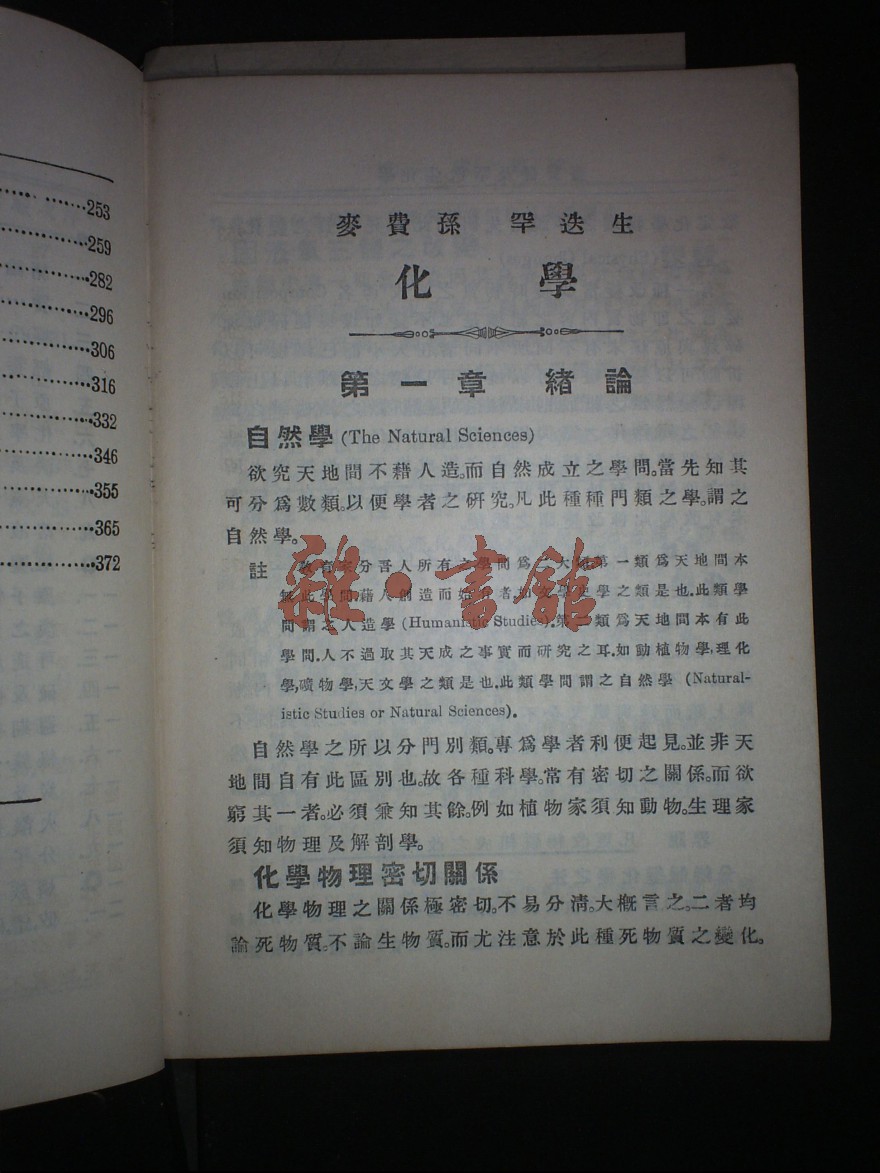 253
259
282
296
306
316
332
346
355
365
372
麥費孫 罕迭生
化學
第一章 緒論
自然學 (The Natural Sciences)
欲究天地間不藉人造。而自然成立之學問。當先知其
可分爲數類。以便學者之硏究。凡此種種門類之學。謂之
自然學。
註 分吾人所有之學問爲二大類。第一類爲天地間本
無此學問。藉人創造而始有者。如文學史學之類是也。此類學
問謂之人造學 (Humanistic Studies)。第二類爲天地間本有此
學問。人不過取其天成之事實而硏究之耳。如動植物學，理化
學，礦物學，天文學之類是也。此類學問謂之自然學 (Natural-
istic Studies or Natural Sciences)。
自然學之所以分門別類。專爲學者利便起見。並非天
地間自有此區別也。故各種科學。常有密切之關係。而欲
窮其一者。必須兼知其餘。例如植物家須知動物。生理家
須知物理及解剖學。
化學物理密切關係
化學物理之關係極密切。不易分淸。大槪言之。二者均
論死物質。不論生物質。而尤注意於此種死物質之變化。
雜·書館